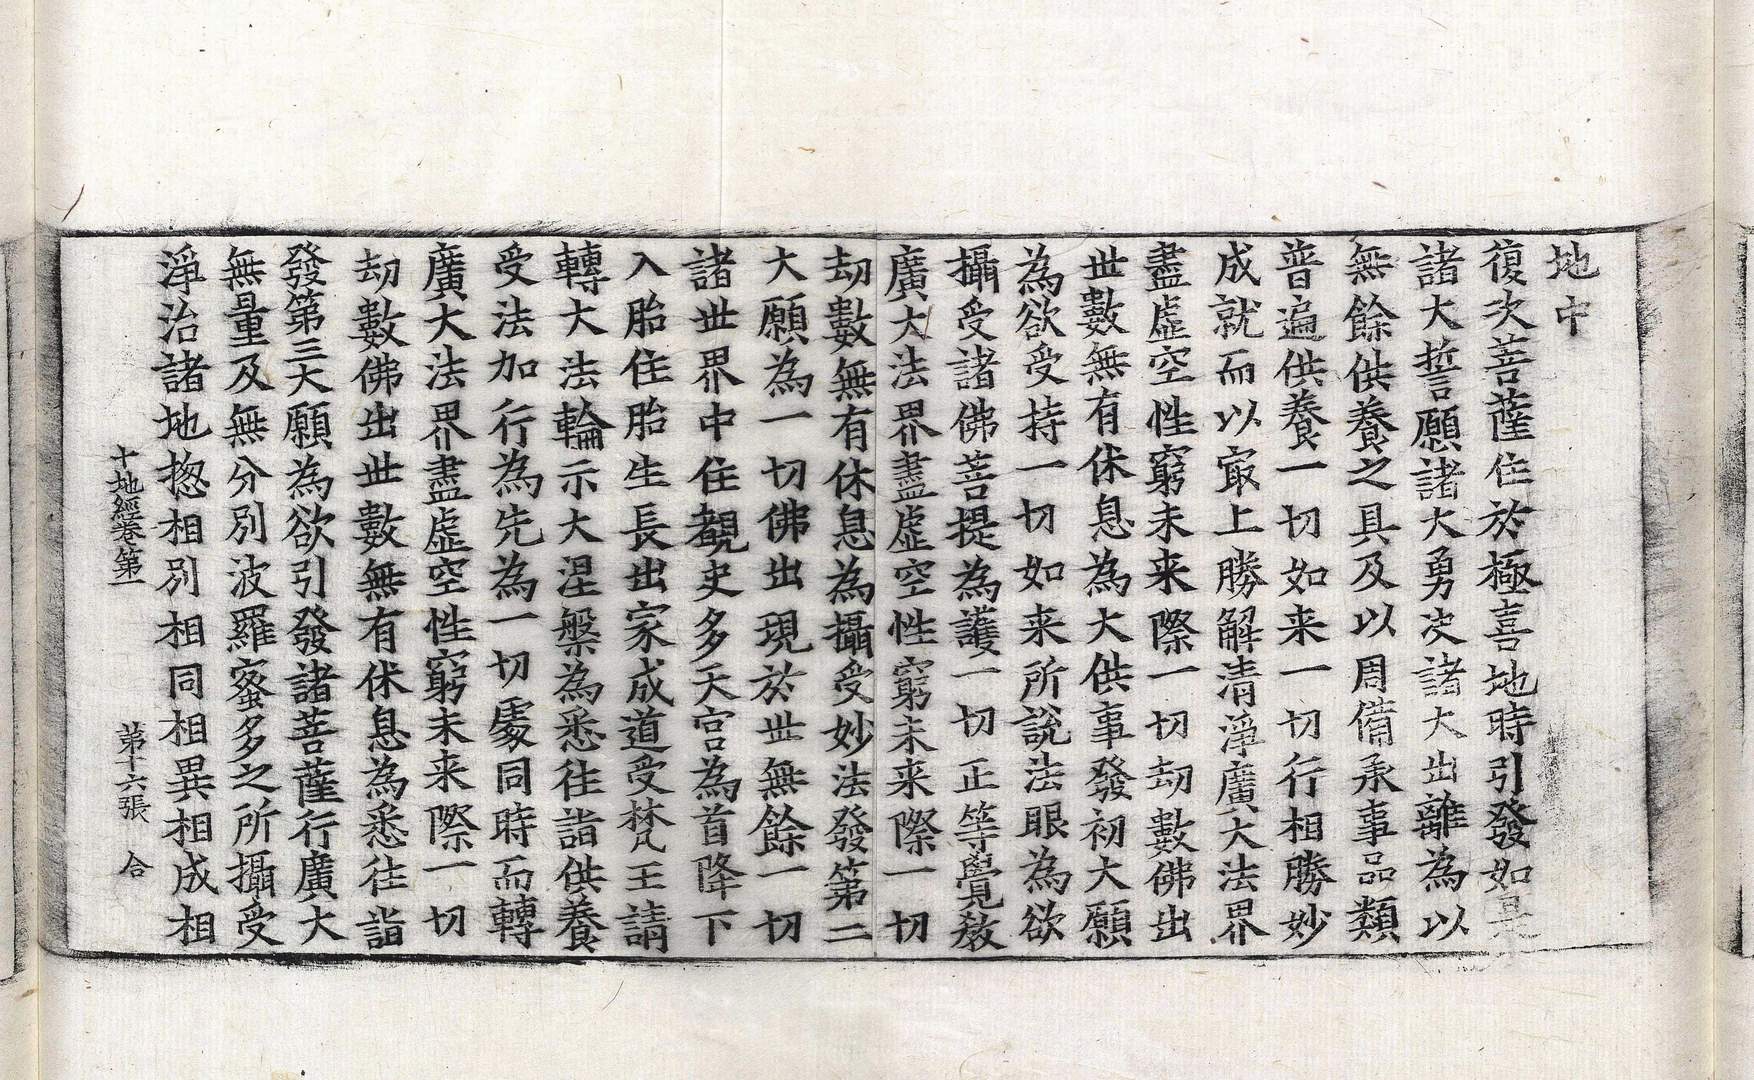 地中
復次菩薩住於極喜地時引發如是
諸大誓願諸大勇决諸大出離為以
無餘供養之具及以周備承事品類
普遍供養一切如来一切行相勝妙
成就而以㝡上勝解清淨廣大法界
盡虛空性窮未来際一切劫數佛出
世數無有休息為大供事發初大願
為欲受持一切如来所說法眼為欲
攝受諸佛菩提為護一切正等覺教
廣大法界盡虛空性窮未来際一切
劫數無有休息為攝受妙法發第二
大願為一切佛出現於世無餘一切
諸世界中住覩史多天宮為首降下
入胎住胎生長出家成道受梵王請
轉大法輪示大涅槃為悉往詣供養
受法加行為先為一切處同時而轉
廣大法界盡虛空性窮未来際一切
劫數佛出世數無有休息為悉往詣
發第三大願為欲引發諸菩薩行廣大
無量及無分別波羅蜜多之所攝受
淨治諸地揔相別相同相異相成相
十地經卷第一 第十六張 合